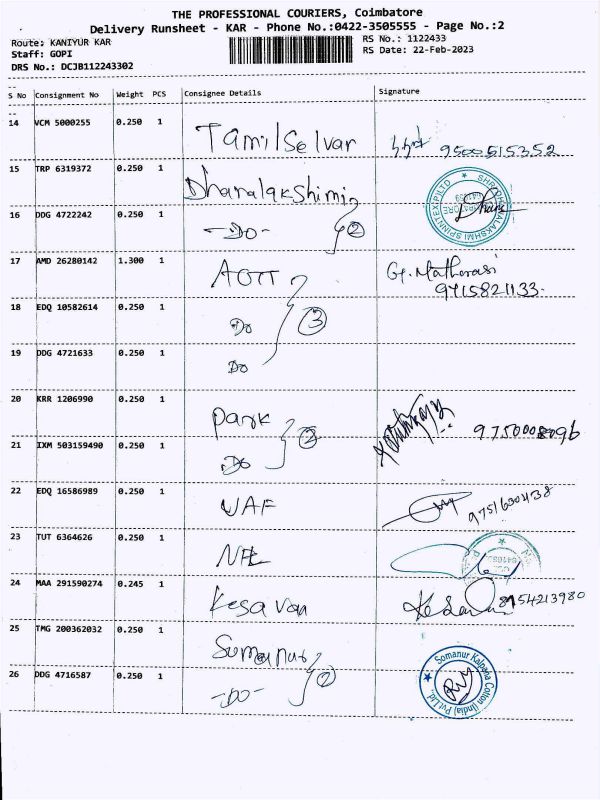 THE PROFESSIONAL COURIERS, Coimbatore
Delivery Runsheet - KAR - Phone No.:0422-3505555 - Page No.:2
Route: KANIYUR KAR
RS No.: 1122433
Staff: GOPI
RS Date: 22-Feb-2023
DRS No.: DCJB112243302
S No Consignment No Weight PCS Consignee Details Signature
14 VCM 5000255 0.250 1 Tamil Selvan 9500515352
15 TRP 6319372 0.250 1 Dhanalakshimi
16 DDG 4722242 0.250 1 -Do- 2
17 AMD 26280142 1.300 1 AOTT G. Matherasi
9715821133.
18 EDQ 10582614 0.250 1 Do 3
19 DDG 4721633 0.250 1 Do
20 KRR 1206990 0.250 1 Park 9750008096
21 IXM 503159490 0.250 1 Do 2
22 EDQ 16586989 0.250 1 UAF
23 TUT 6364626 0.250 1
24 MAA 291590274 0.245 1 Kesavan 8954213980
25 TMG 200362032 0.250 1 Somanur
26 DDG 4716587 0.250 1 -Do- 2
Somanur Kalpana Cotton (India) Pvt Ltd.,